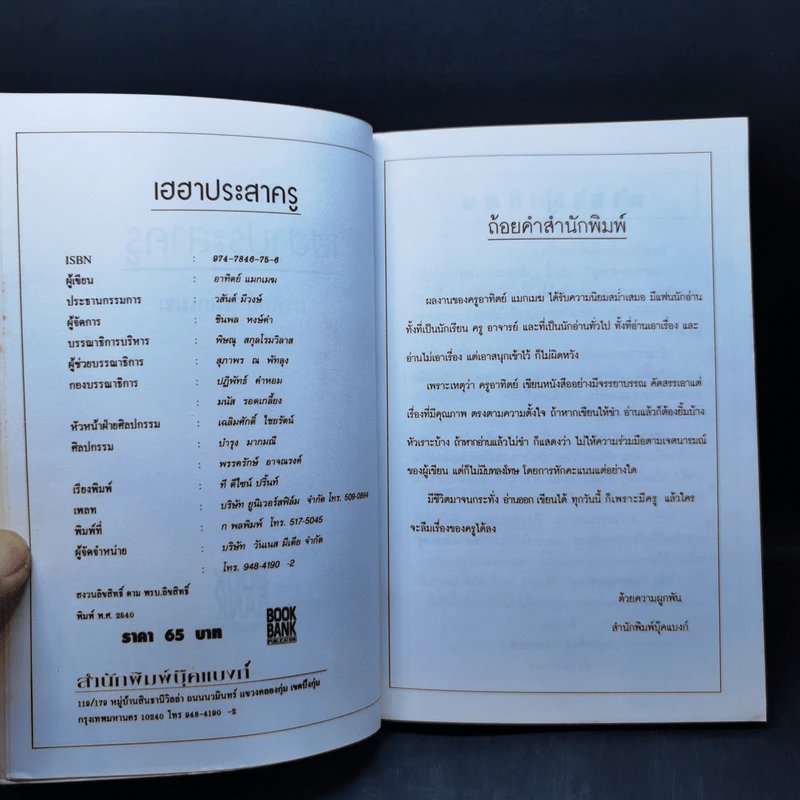 เฮฮาประสาครู
ISBN : 974-7846-75-6
ผู้เขียน : อาทิตย์ แมกเมฆ
ประธานกรรมการ : วสันต์ มีวงษ์
ผู้จัดการ : ชินพล หงษ์คำ
บรรณาธิการบริหาร : พิษณุ สกุลโรมวิลาส
ผู้ช่วยบรรณาธิการ : สุภาพร ณ พัทลุง
กองบรรณาธิการ : ปฏิพัทธ์ คำหอม
มนัส รอดเกลี้ยง
หัวหน้าฝ่ายศิลปกรรม : เฉลิมศักดิ์ ไชยรัตน์
ศิลปกรรม : บำรุง มากมณี
พรรครักษ์ อาจณรงค์
เรียงพิมพ์ : ที ดีไซน์ ปริ้นท์
เพลท : บริษัท ยูนิเวอร์สฟิล์ม จำกัด โทร. 509-0864
พิมพ์ที่ : ก พลพิมพ์ โทร. 517-5045
ผู้จัดจำหน่าย : บริษัท วันเนส มีเดีย จำกัด
: โทร. 948-4190 -2
สงวนลิขสิทธิ์ ตาม พรบ.ลิขสิทธิ์
พิมพ์ พ.ศ. 2540
ราคา 65 บาท
BOOK
BANK
PUBLICATION
สำนักพิมพ์บุ๊คแบงก์
119/179 หมู่บ้านสินธานีวิลล่า ถนนนวมินทร์ แขวงคลองกุ่ม เขตบึงกุ่ม
กรุงเทพมหานคร 10240 โทร 948-4190 -2
ถ้อยคำสำนักพิมพ์
ผลงานของครูอาทิตย์ แมกเมฆ ได้รับความนิยมสม่ำเสมอ มีแฟนนักอ่าน
ทั้งที่เป็นนักเรียน ครู อาจารย์ และที่เป็นนักอ่านทั่วไป ทั้งที่อ่านเอาเรื่อง และ
อ่านไม่เอาเรื่อง แต่เอาสนุกเข้าไว้ ก็ไม่ผิดหวัง
เพราะเหตุว่า ครูอาทิตย์ เขียนหนังสืออย่างมีจรรยาบรรณ คัดสรรเอาแต่
เรื่องที่มีคุณภาพ ตรงตามความตั้งใจ ถ้าหากเขียนให้ขำ อ่านแล้วก็ต้องยิ้มบ้าง
หัวเราะบ้าง ถ้าหากอ่านแล้วไม่ขำ ก็แสดงว่า ไม่ให้ความร่วมมือตามเจตนารมณ์
ของผู้เขียน แต่ก็ไม่มีบทลงโทษ โดยการหักคะแนนแต่อย่างใด
มีชีวิตมาจนกระทั่ง อ่านออก เขียนได้ ทุกวันนี้ ก็เพราะมีครู แล้วใคร
จะลืมเรื่องของครูได้ลง
ด้วยความผูกพัน
สำนักพิมพ์บุ๊คแบงก์